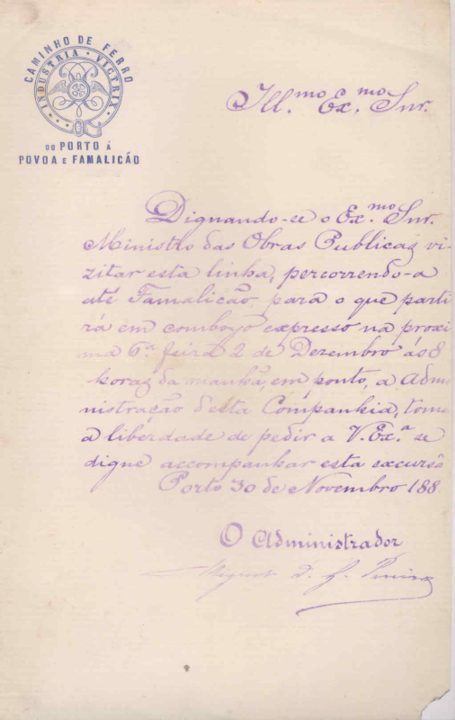 CAMINHO DE FERRO
INDUSTRIA · VICTRIX
DO PORTO Á
POVOA E FAMALICÃO
Ill.mo Ex.mo Snr.
Dignando-se o Ex.mo Snr.
Ministro das Obras Publicas vi-
zitar esta linha, percorrendo-a
até Famalicão, para o que parti-
rá em comboyo expresso na proxi-
ma 6.ª feira 2 de Dezembro ás 8
horas da manhã, em ponto, a Admi-
nistração d'esta Companhia, toma
a liberdade de pedir a V. Ex.ª se
digne accompanhar esta excursã
Porto 30 de Novembro 188
O Administrador